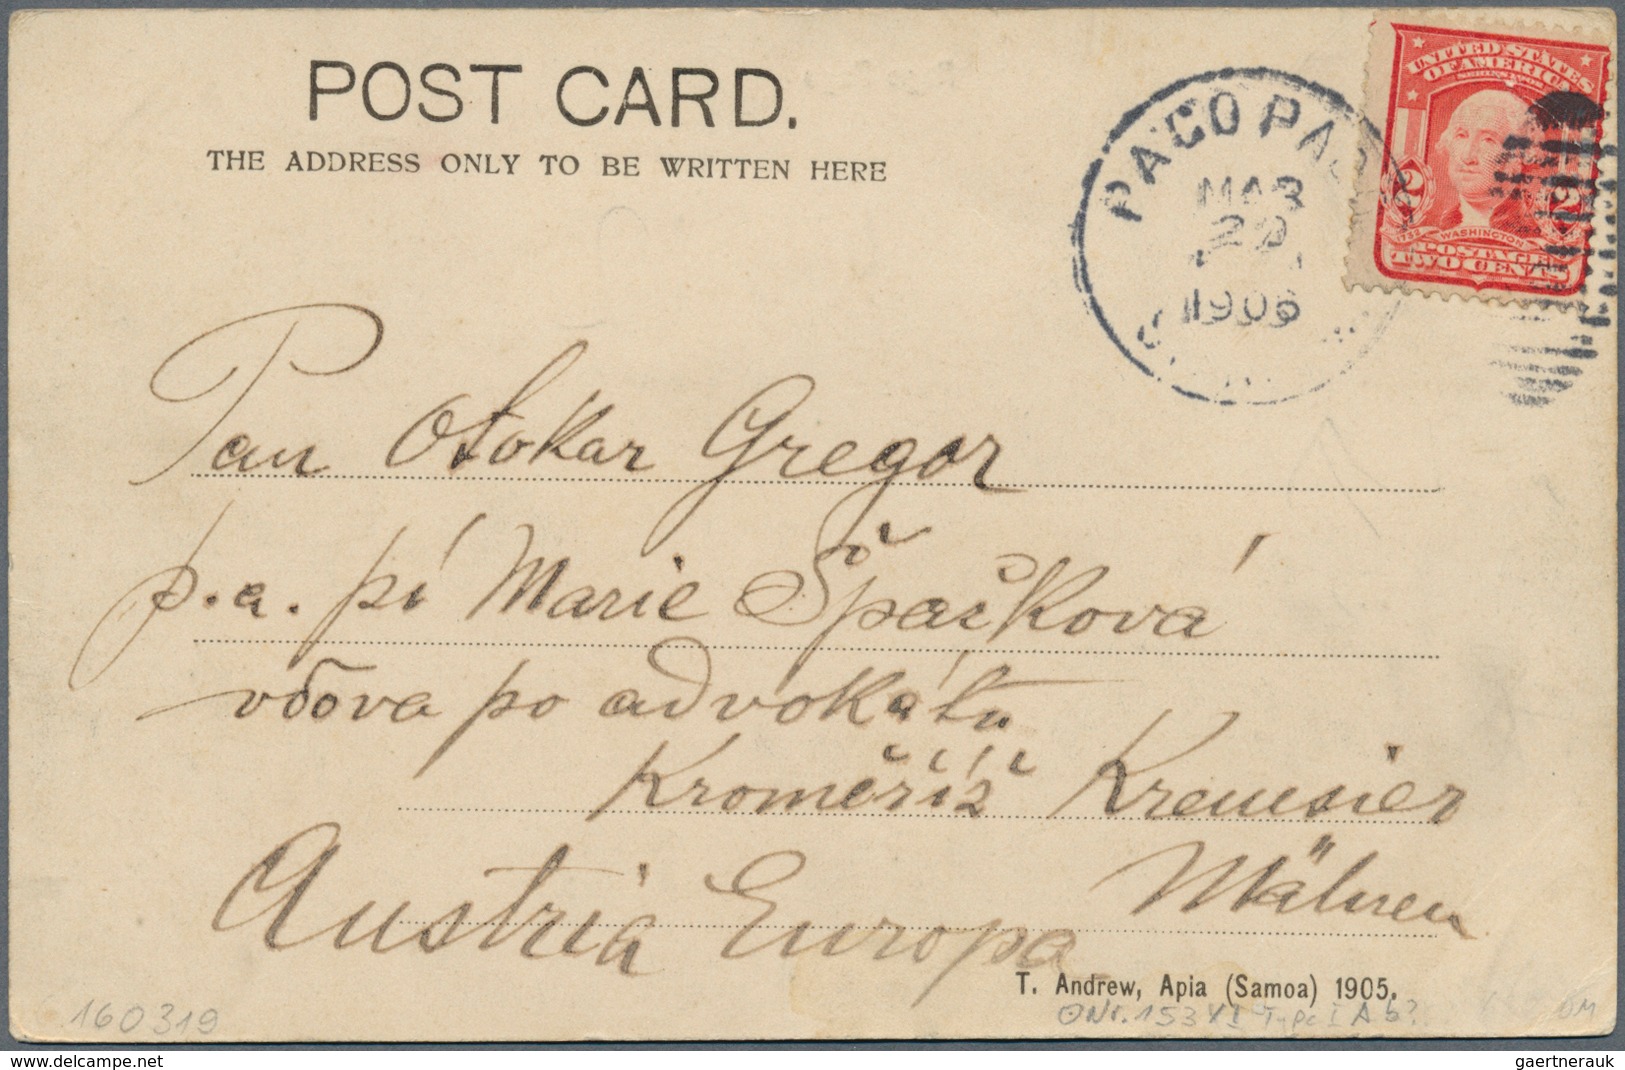 POST CARD.
THE ADDRESS ONLY TO BE WRITTEN HERE
PAGO PAGO
MAR
29
1906
UNITED STATES
OF AMERICA
2 2
1732 WASHINGTON
POSTAGE
TWO CENTS
Pan Otokar Gregor
p.a. pí Marie Špačková
vdova po advokátu
Kroměříž Kremsier
Mähren
Austria Europa
T. Andrew, Apia (Samoa) 1905.
160319
gaertnerauk
delcampe.net